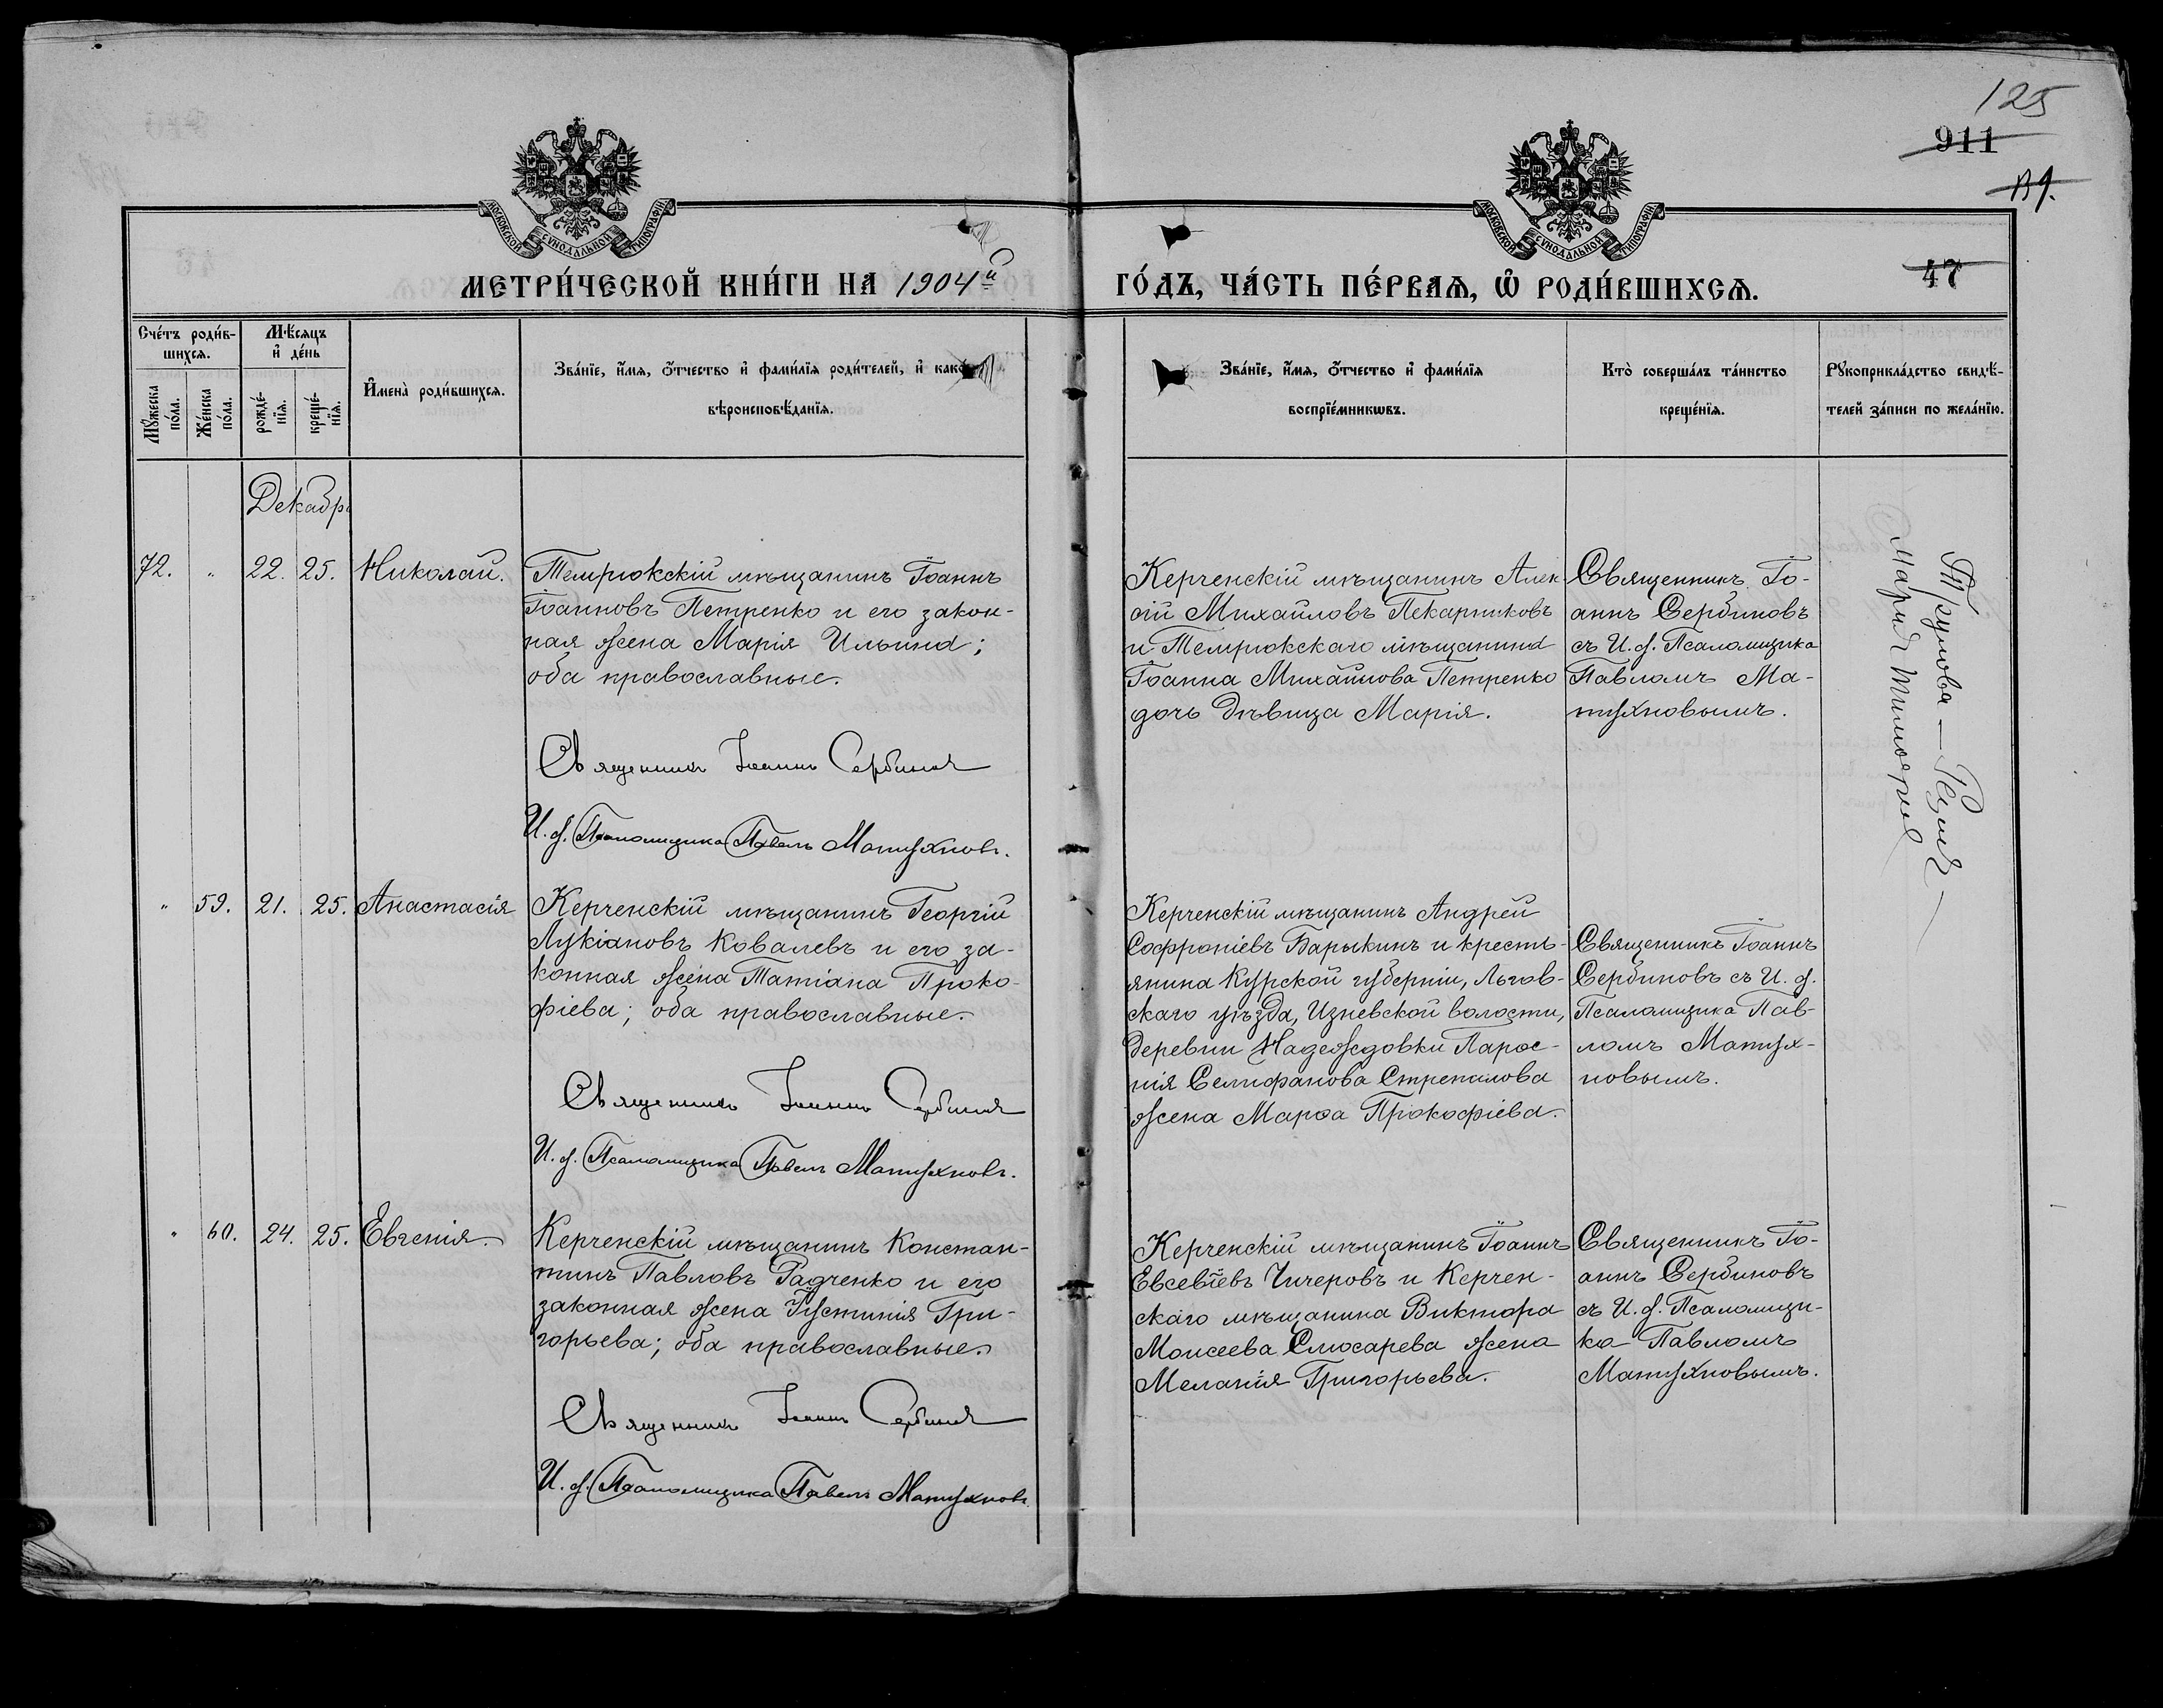 125
911
119.
МОСКОВСКОЙ СѴНОДАЛЬНОЙ ТИПОГРАФІИ
МОСКОВСКОЙ СѴНОДАЛЬНОЙ ТИПОГРАФІИ
МЕТРИ́ЧЕСКОЙ КНИ́ГИ НА 1904й
ГО́ДЪ, ЧА́СТЬ ПЕ́РВАѦ, Ѽ РОДИ́ВШИХСѦ.
47
Сче́тъ роди́в-
шихсѧ.
Мꙋ́жеска
по́ла.
Же́нска
по́ла.
Мѣ́сяцъ
и҆ де́нь
рожде́-
нїѧ.
креще́-
нїѧ.
И҆мена̀ роди́вшихсѧ.
Зва́нїе, и҆́мѧ, ѻ҆́тчество и҆ фами́лїѧ роди́телей, и҆ како́
вѣроисповѣ́данїѧ.
Зва́нїе, и҆́мѧ, ѻ҆́тчество и҆ фами́лїѧ
воспрїе́мникѡвъ.
Кто̀ соверша́лъ та́инство
креще́нїѧ.
Рꙋкоприкла́дство свидѣ́-
телей за́писи по жела́нїю.
Декабрь
72. " 22. 25. Николай.
Темрюкскій мѣщанинъ Іоаннъ
Іоанновъ Петренко и его закон-
ная жена Марія Ильина;
оба православные.
Священникъ Іоаннъ Сербиновъ
И. д. Псаломщика Павелъ Матухновъ.
Керченскій мѣщанинъ Алек-
сій Михайловъ Пекарниковъ
и Темрюкскаго мѣщанина
Іоанна Михайлова Петренко
дочь дѣвица Марія.
Священникъ Іо-
аннъ Сербиновъ
съ И. д. Псаломщика
Павломъ Ма-
тухновымъ.
" 59. 21. 25. Анастасія
Керченскій мѣщанинъ Георгій
Лукіановъ Ковалевъ и его за-
конная жена Татіана Проко-
фіева; оба православные.
Священникъ Іоаннъ Сербиновъ
И. д. Псаломщика Павелъ Матухновъ.
Керченскій мѣщанинъ Андрей
Софроніевъ Барыкинъ и кресть-
янина Курской губерніи, Льгов-
скаго уѣзда, Изневской волости,
деревни Надеждовки Парѳе-
нія Селифанова Стрекалова
жена Марѳа Прокофіева.
Священникъ Іоаннъ
Сербиновъ съ И. д.
Псаломщика Пав-
ломъ Матух-
новымъ.
" 60. 24. 25. Евгенія.
Керченскій мѣщанинъ Констан-
тинъ Павловъ Радченко и его
законная жена Іустинія Гри-
горьева; оба православные.
Священникъ Іоаннъ Сербиновъ
И. д. Псаломщика Павелъ Матухновъ
Керченскій мѣщанинъ Іоаннъ
Евсевіевъ Чичеровъ и Керчен-
скаго мѣщанина Виктора
Моисеева Слюсарева жена
Меланія Григорьева.
Священникъ Іо-
аннъ Сербиновъ
съ И. д. Псаломщи-
ка Павломъ
Матухновымъ.